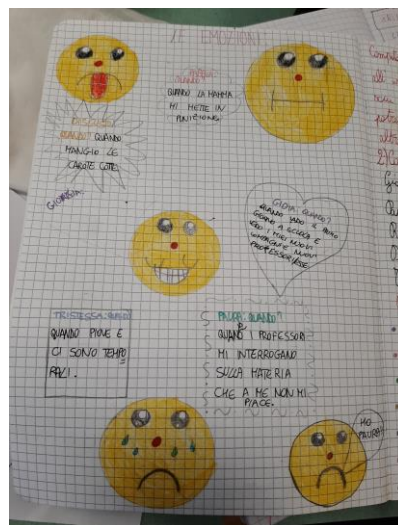 LE EMOZIONI
QUANDO?
QUANDO LA MAMMA
MI METTE IN
PUNIZIONE.
DISGUSTO:
QUANDO? QUANDO
MANGIO LE
CAROTE COTTE.
GIOIA: QUANDO?
QUANDO VADO IL PRIMO
GIORNO A SCUOLA E
VEDO I MIEI NUOVI
COMPAGNI E NUOVI
PROFESSORI/ESSE.
TRISTEZZA: QUANDO?
QUANDO PIOVE E
CI SONO TEMPO
RALI.
PAURA: QUANDO?
QUANDO I PROFESSORI
MI INTERROGANO
SULLA MATERIA
CHE A ME NON MI
PIACE.
HO
PAURA!